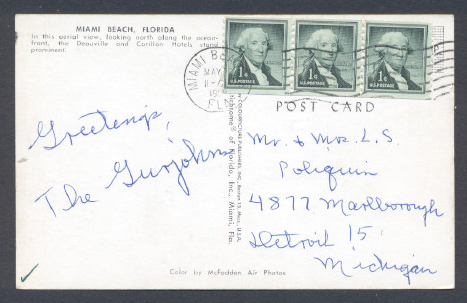 MIAMI BEACH, FLORIDA
In this aerial view, looking north along the ocean-
front, the Deauville and Carillon Hotels stand
prominent.
1¢ 1¢ 1¢
U.S. POSTAGE U.S. POSTAGE U.S. POSTAGE
MIAMI
MAY
FLA
POST CARD
Greetings,
The
of Florida, Inc., Miami, Fla.
Mr. & Mrs. L.S.
Poliquin
4877 Marlborough
Detroit 15,
Michigan
Color by McFadden Air Photos